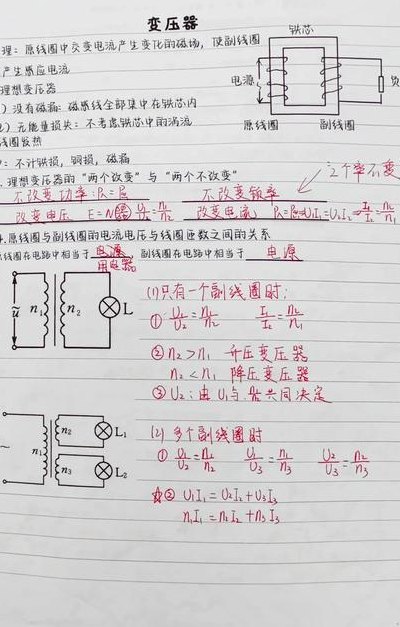 变压器
理:原线圈中交变电流产生变化的磁场,使副线圈
产生感应电流
理想变压器
)没有磁漏:磁感线全部集中在铁芯内
)无能量损失:不考虑铁芯中的涡流
线圈发热
:不计铁损,铜损,磁漏
铁芯
电源
负
原线圈
副线圈
理想变压器的“两个改变”与“两个不改变”
“2个率不变
不改变功率:P₁=P₂ 不改变频率
改变电压 U₁/U₂=n₁/n₂ 改变电流 I₁/I₂=n₂/n₁
.原线圈与副线圈的电流电压与线圈匝数之间的关系
线圈在电路中相当于 电源 用电器 副线圈在电路中相当于 电源
ũ n₁ n₂ L
(1)只有一个副线圈时:
① U₁/U₂=n₁/n₂ I₁/I₂=n₂/n₁
② n₂>n₁ 升压变压器
n₂<n₁ 降压变压器
③ U₂:由U₁与 共同决定
~ n₁ n₂ L₁
n₃ L₂
(2)多个副线圈时
① U₁/U₂=n₁/n₂ U₁/U₃=n₁/n₃ U₂/U₃=n₂/n₃
☆② U₁I₁=U₂I₂+U₃I₃
n₁I₁=n₂I₂+n₃I₃